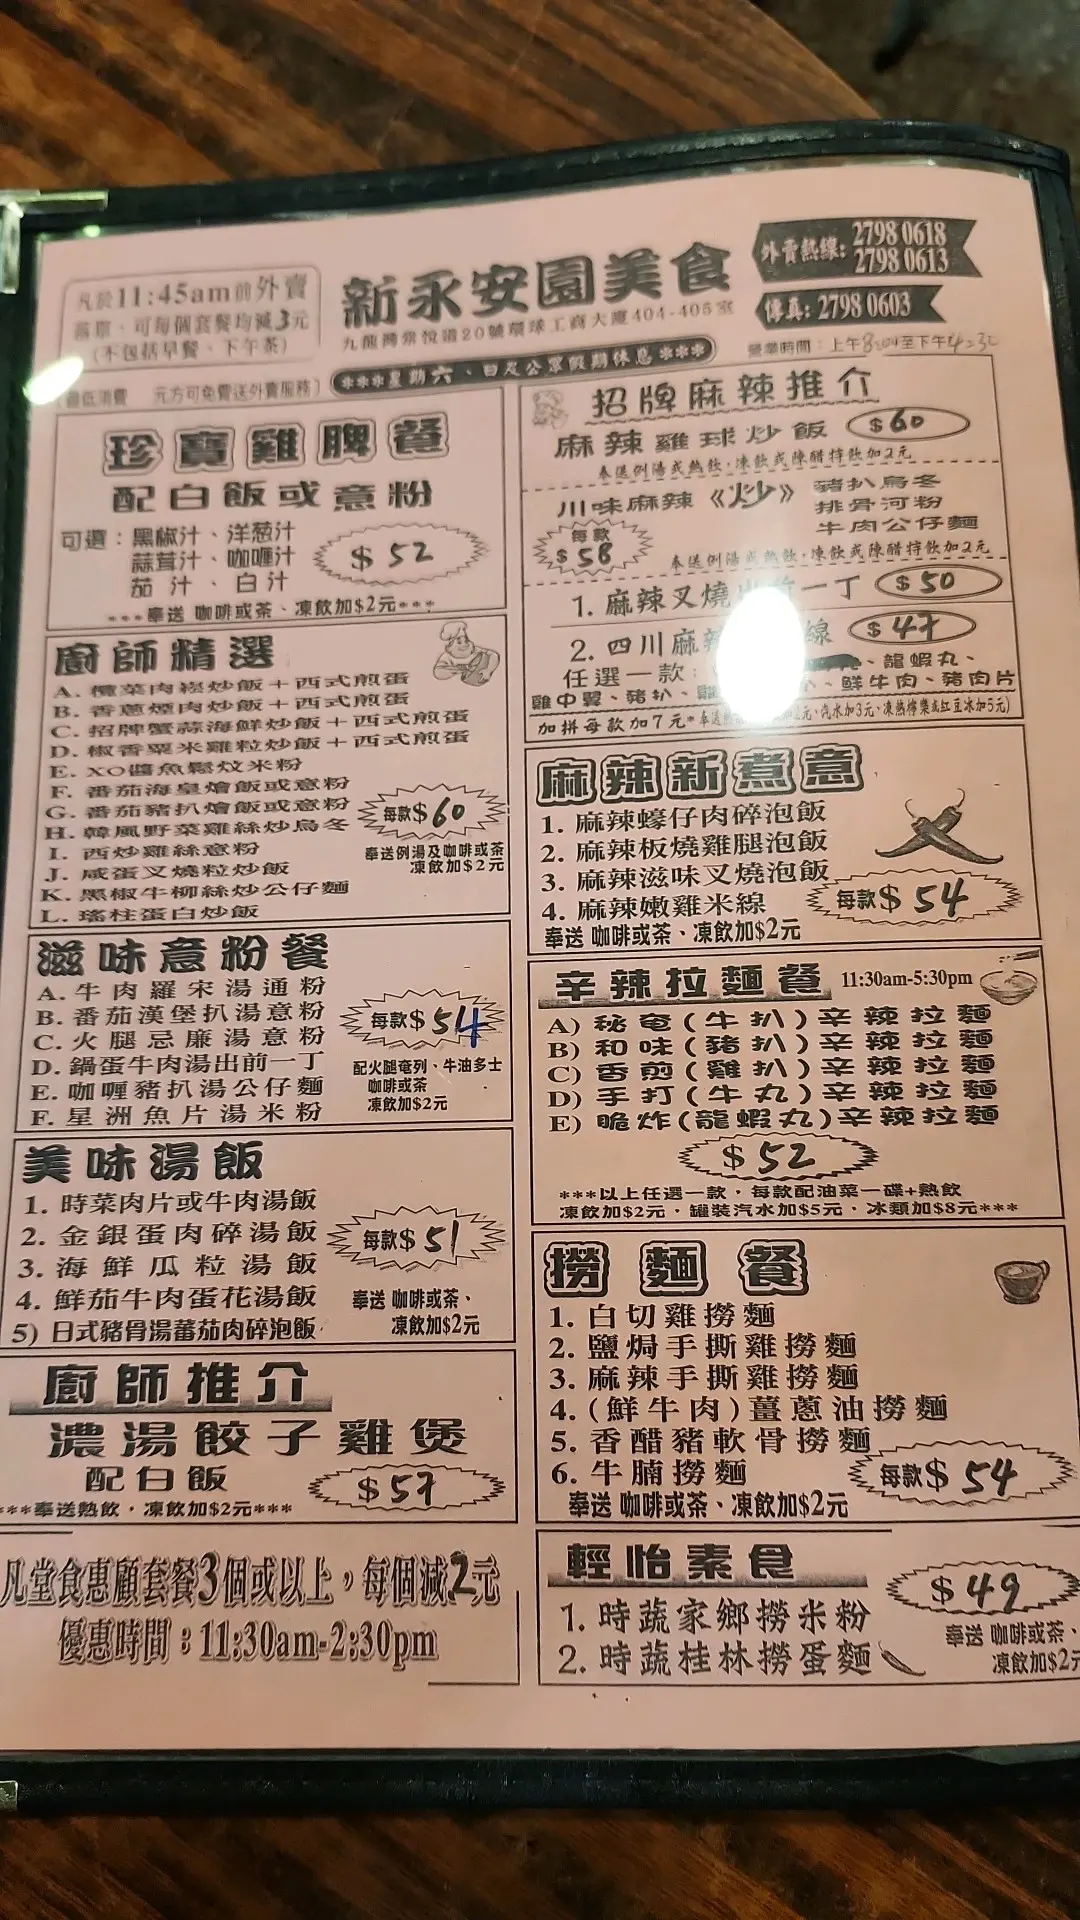 凡於11:45am前外賣
落單、可每個套餐均減3元
(不包括早餐、下午茶)
新永安園美食
九龍灣常悅道20號環球工商大廈404-405室
外賣熱線: 2798 0618
2798 0613
傳真: 2798 0603
營業時間:上午8:00至下午4:30
***星期六、日及公眾假期休息***
(最低消費 元方可免費送外賣服務)
珍寶雞脾餐
配白飯或意粉
可選:黑椒汁、洋葱汁
蒜茸汁、咖喱汁
茄汁、白汁
$52
***奉送 咖啡或茶、凍飲加$2元***
廚師精選
A. 欖菜肉崧炒飯+西式煎蛋
B. 香蔥煙肉炒飯+西式煎蛋
C. 招牌蟹蒜海鮮炒飯+西式煎蛋
D. 椒香粟米雞粒炒飯+西式煎蛋
E. XO醬魚鬆炆米粉
F. 番茄海皇燴飯或意粉
G. 番茄豬扒燴飯或意粉
H. 韓風野菜雞絲炒烏冬
I. 西炒雞絲意粉
J. 咸蛋叉燒粒炒飯
K. 黑椒牛柳絲炒公仔麵
L. 瑤柱蛋白炒飯
每款$60
奉送例湯及咖啡或茶
凍飲加$2元
滋味意粉餐
A. 牛肉羅宋湯通粉
B. 番茄漢堡扒湯意粉
C. 火腿忌廉湯意粉
D. 鍋蛋牛肉湯出前一丁
E. 咖喱豬扒湯公仔麵
F. 星洲魚片湯米粉
每款$54
配火腿奄列、牛油多士
咖啡或茶
凍飲加$2元
美味湯飯
1. 時菜肉片或牛肉湯飯
2. 金銀蛋肉碎湯飯
3. 海鮮瓜粒湯飯
4. 鮮茄牛肉蛋花湯飯
5) 日式豬骨湯蕃茄肉碎泡飯
每款$51
奉送 咖啡或茶、
凍飲加$2元
廚師推介
濃湯餃子雞煲
配白飯
$57
***奉送熱飲,凍飲加$2元***
凡堂食惠顧套餐3個或以上,每個減2元
優惠時間:11:30am-2:30pm
招牌麻辣推介
麻辣雞球炒飯 $60
奉送例湯或熱飲,凍飲或陳醋特飲加2元
川味麻辣《炒》
豬扒烏冬
排骨河粉
牛肉公仔麵
每款
$58
奉送例湯或熱飲,凍飲或陳醋特飲加2元
1. 麻辣叉燒出前一丁 $50
2. 四川麻辣 線 $47
任選一款: 、龍蝦丸、
雞中翼、豬扒、 、鮮牛肉、豬肉片
加拼每款加7元*奉送 元、汽水加3元、凍熱檸樂或紅豆冰加5元)
麻辣新煮意
1. 麻辣蠔仔肉碎泡飯
2. 麻辣板燒雞腿泡飯
3. 麻辣滋味叉燒泡飯
4. 麻辣嫩雞米線
每款$54
奉送 咖啡或茶、凍飲加$2元
辛辣拉麵餐 11:30am-5:30pm
A) 秘奄(牛扒)辛辣拉麵
B) 和味(豬扒)辛辣拉麵
C) 香煎(雞扒)辛辣拉麵
D) 手打(牛丸)辛辣拉麵
E) 脆炸(龍蝦丸)辛辣拉麵
$52
***以上任選一款,每款配油菜一碟+熱飲
凍飲加$2元,罐裝汽水加$5元,冰類加$8元***
撈麵餐
1. 白切雞撈麵
2. 鹽焗手撕雞撈麵
3. 麻辣手撕雞撈麵
4. (鮮牛肉)薑蔥油撈麵
5. 香醋豬軟骨撈麵
6. 牛腩撈麵
每款$54
奉送 咖啡或茶、凍飲加$2元
輕怡素食
1. 時蔬家鄉撈米粉
2. 時蔬桂林撈蛋麵
$49
奉送 咖啡或茶、
凍飲加$2元